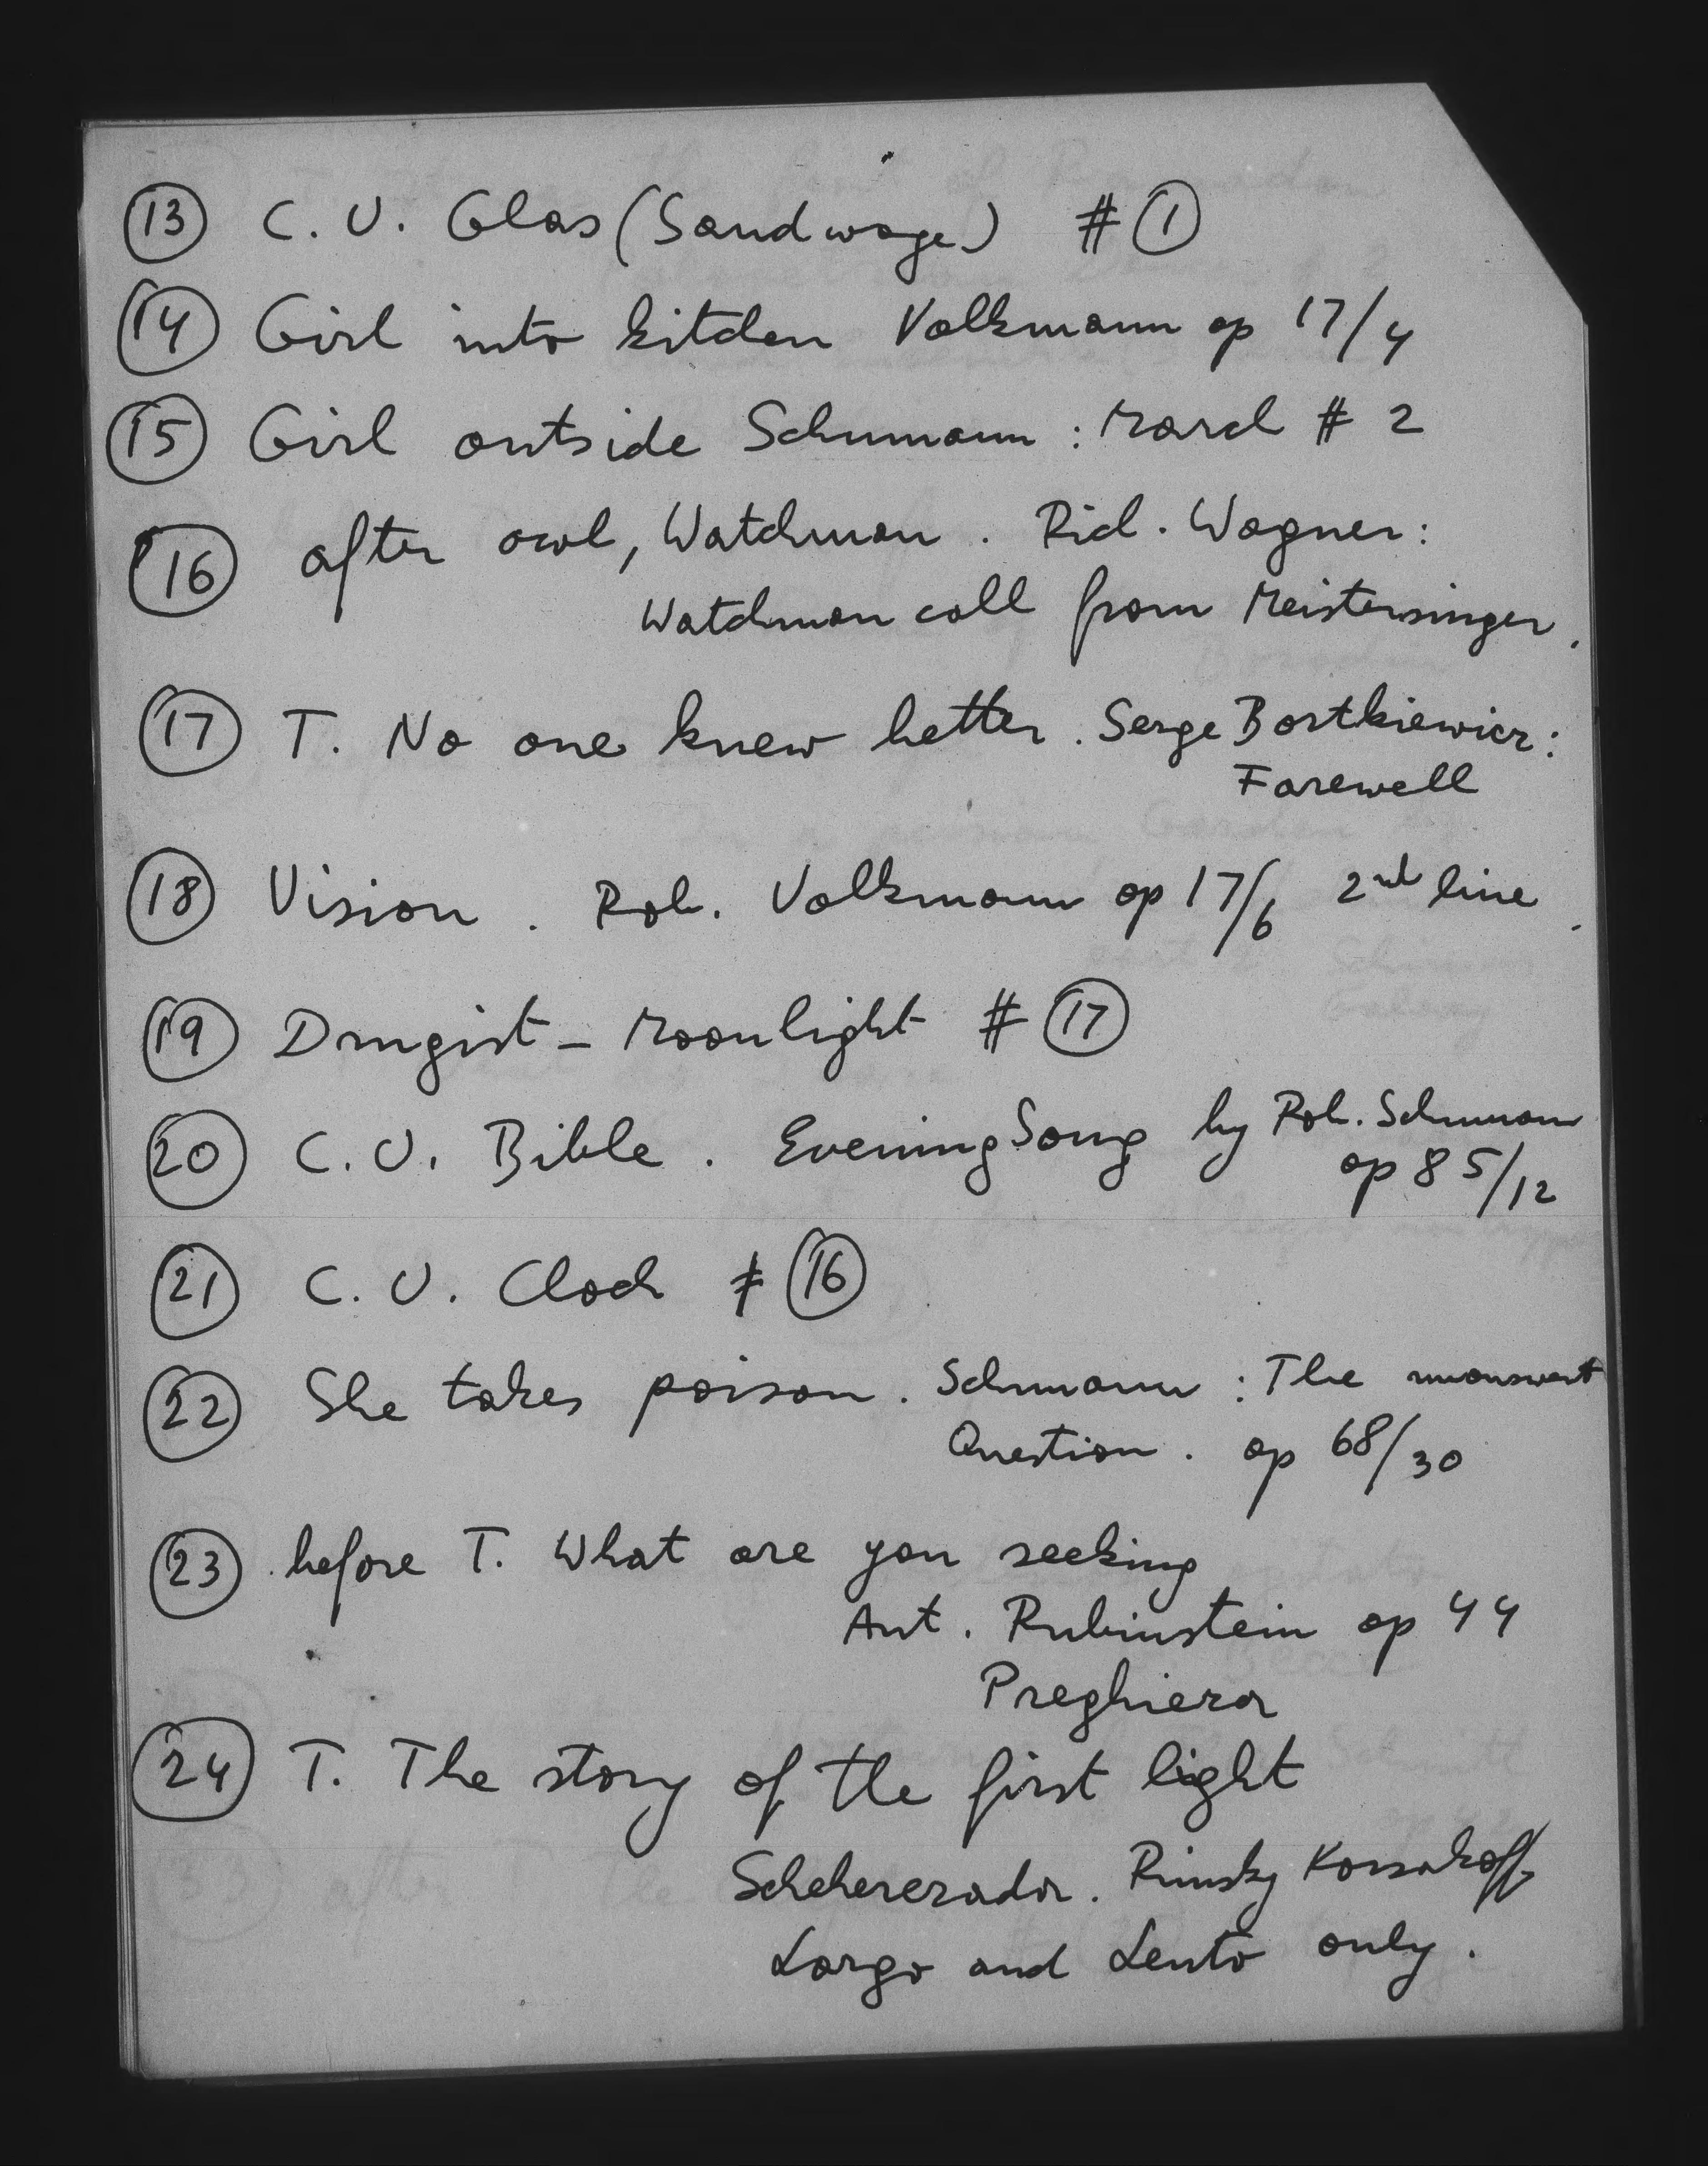 13 C. U. Glas (Sandwage) # 1
14 Girl into kitchen Volkmann op 17/4
15 Girl outside Schumann: March # 2
16 after owl, Watchman. Rich. Wagner:
Watchman call from Meistersinger.
17 T. No one knew better. Serge Bortkiewicz:
Farewell
18 Vision. Rob. Volkmann op 17/6 2nd line.
19 Drugist - Moonlight # 17
20 C. U. Bible. Evening Song by Rob. Schumann
op 85/12
21 C. U. Clock # 16
22 She takes poison. Schumann: The unanswert
Question. op 68/30
23 before T. What are you seeking
Ant. Rubinstein op 44
Preghiera
24 T. The story of the first light
Scheherezada. Rimsky Korsakoff
Largo and Lento only.